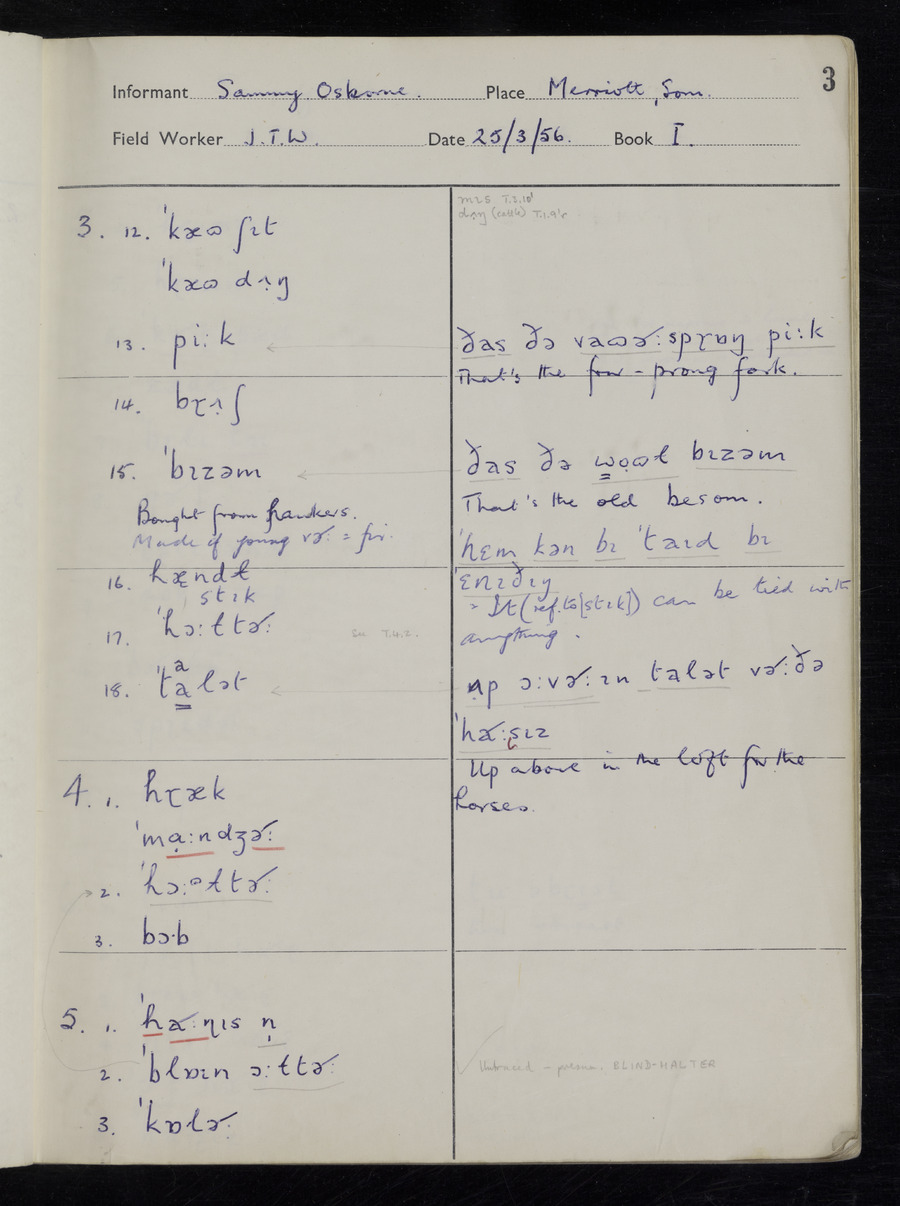 3
Informant Sammy Osborne. Place Merriott, Som.
Field Worker J.T.W. Date 25/3/56. Book I.
3. 12. ˈkæɷ ʃɪt
ˈkæɷ dʌŋ
13. piːk
14. bɽʌʃ
15. ˈbɪzəm
Bought from hawkers.
Made of young vɚː = fir.
16. hændɫ
stɪk
17. ˈhɔːɫtɚː
18. ˈtalət
a
4. 1. hɽæk
ˈmạːndʒɚː
2. ˈhɔːᵊɫtɚː
3. bɔ·b
5. 1. ˈhɑ˞ːɳɪs n̩
2. ˈblɒɪn ɔːɫtɚː
3. ˈkɒlɚː
ðas ðə vaɷɚːspɽɒŋ piːk
That's the four-prong fork.
ðas ðə wọɷɫ bɪzəm
That's the old besom.
ˈhɛm kən bɪ ˈtaɪd bɪ
ˈɛnɪðɪŋ
= It (ref. to [stɪk]) can be tied with
anything.
ʌp ɔːvɚːɪn talət vɚːðə
ˈhɑ˞ːsɪz
Up above in the loft for the
horses.
Untraced – presum. BLIND-HALTER